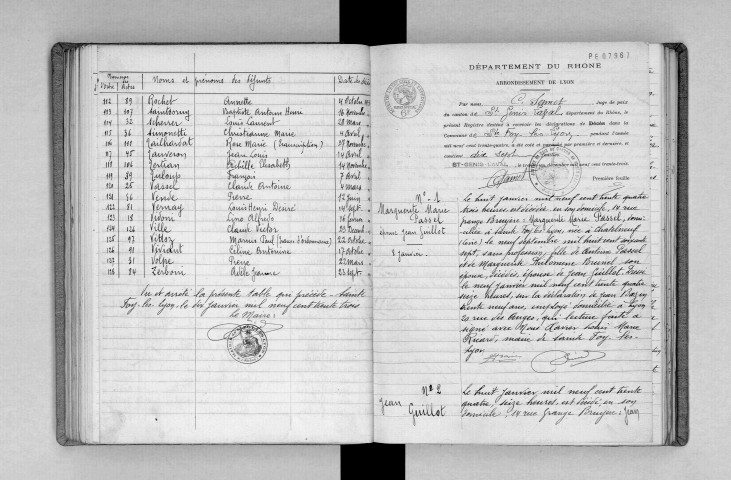 Numéros
d'ordre des actes Noms et prénoms des défunts Date des décès
112 89 Rochet Annette 4 Octobre
113 107 Saintbonny Baptiste Antoine Henri 16 Novembre
114 32 Scherrer Louis Laurent 28 Mars
115 36 Simonetti Christianne Marie 4 Avril
116 111 Taillardat Rose Marie (Transcription) 27 Novembre
117 45 Jean Louis 14 Avril
118 106 Elisabeth 14 Novembre
119 39 François 7 Avril
120 26 Vassel Claude Antoine 4 Mars
121 56 Verde Pierre 12 Juin
122 81 Vernay Louis Henri Désiré 14 Sept.
123 18 Lino Alfredo 16 février
124 126 Ville Claude Victor 23 Décemb
125 97 Vittoz 22 Octobre
126 91 Viviant Céline Antonine 17 Octobre
127 31 Volpe Pierre 22 Mars
128 84 Zerboni Adèle Jeanne 23 Sept.
Vu et arrêté la présente table qui précède. Sainte
Foy-lès-Lyon, le dix janvier mil neuf cent trente trois
Le Maire:
PE07987
DÉPARTEMENT DU RHÔNE
ARRONDISSEMENT DE LYON
Par nous, Juge de paix
du canton de St Genis Laval, département du Rhône, le
présent Registre destiné à constater les déclarations de Décès dans la
Commune de Ste Foy-les-Lyon, pendant l'année
mil neuf cent trente-quatre, a été coté et paraphé par première et dernière, et
contient
ST-GENIS-LAVAL
Première feuille
N° 1
Marguerite Marie
Passel
épouse Jean Guillot
8 janvier.
Le huit janvier mil neuf cent trente quatre
trois heures, est décédée en son domicile, 14 rue
Grange Bruyère: Marguerite Marie Passel, domi-
ciliée à Sainte Foy lès Lyon, née à Chateauneuf
(Loire) le neuf septembre mil huit cent soixante
sept, sans profession, fille de Antoine Passel
et de Marguerite Philomène Brunel son
épouse, décédés, épouse de Jean Guillot. Dressé
le neuf janvier mil neuf cent trente quatre
seize heures, sur la déclaration de Jean
trente neuf ans, employé, domicilié à Lyon
20 rue des Anges, qui, lecture faite a
signé avec Nous Xavier Louis Marie
Ricard, maire de Sainte Foy-lès-
Lyon
N° 2
Jean
Guillot
Le huit janvier mil neuf cent trente
quatre, seize heures, est décédé, en son
domicile, 14 rue Grange Bruyère: Jean